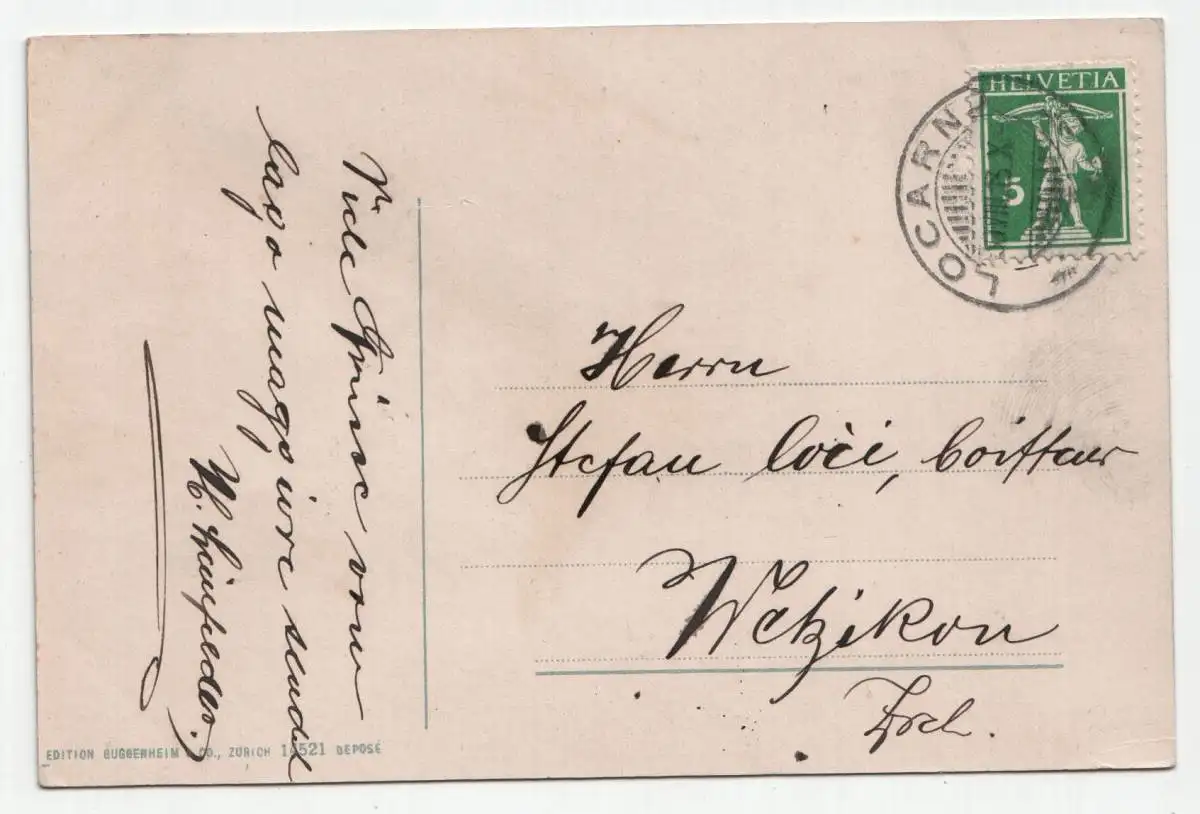 Viele Grüsse vom
lago maggiore sendd
H.
HELVETIA
5
LOCARNO
Herrn
Stefan Côči, Coiffeur
Wetzikon
Zrch.
EDITION GUGGENHEIM & CO., ZÜRICH 14521 DEPOSÉ